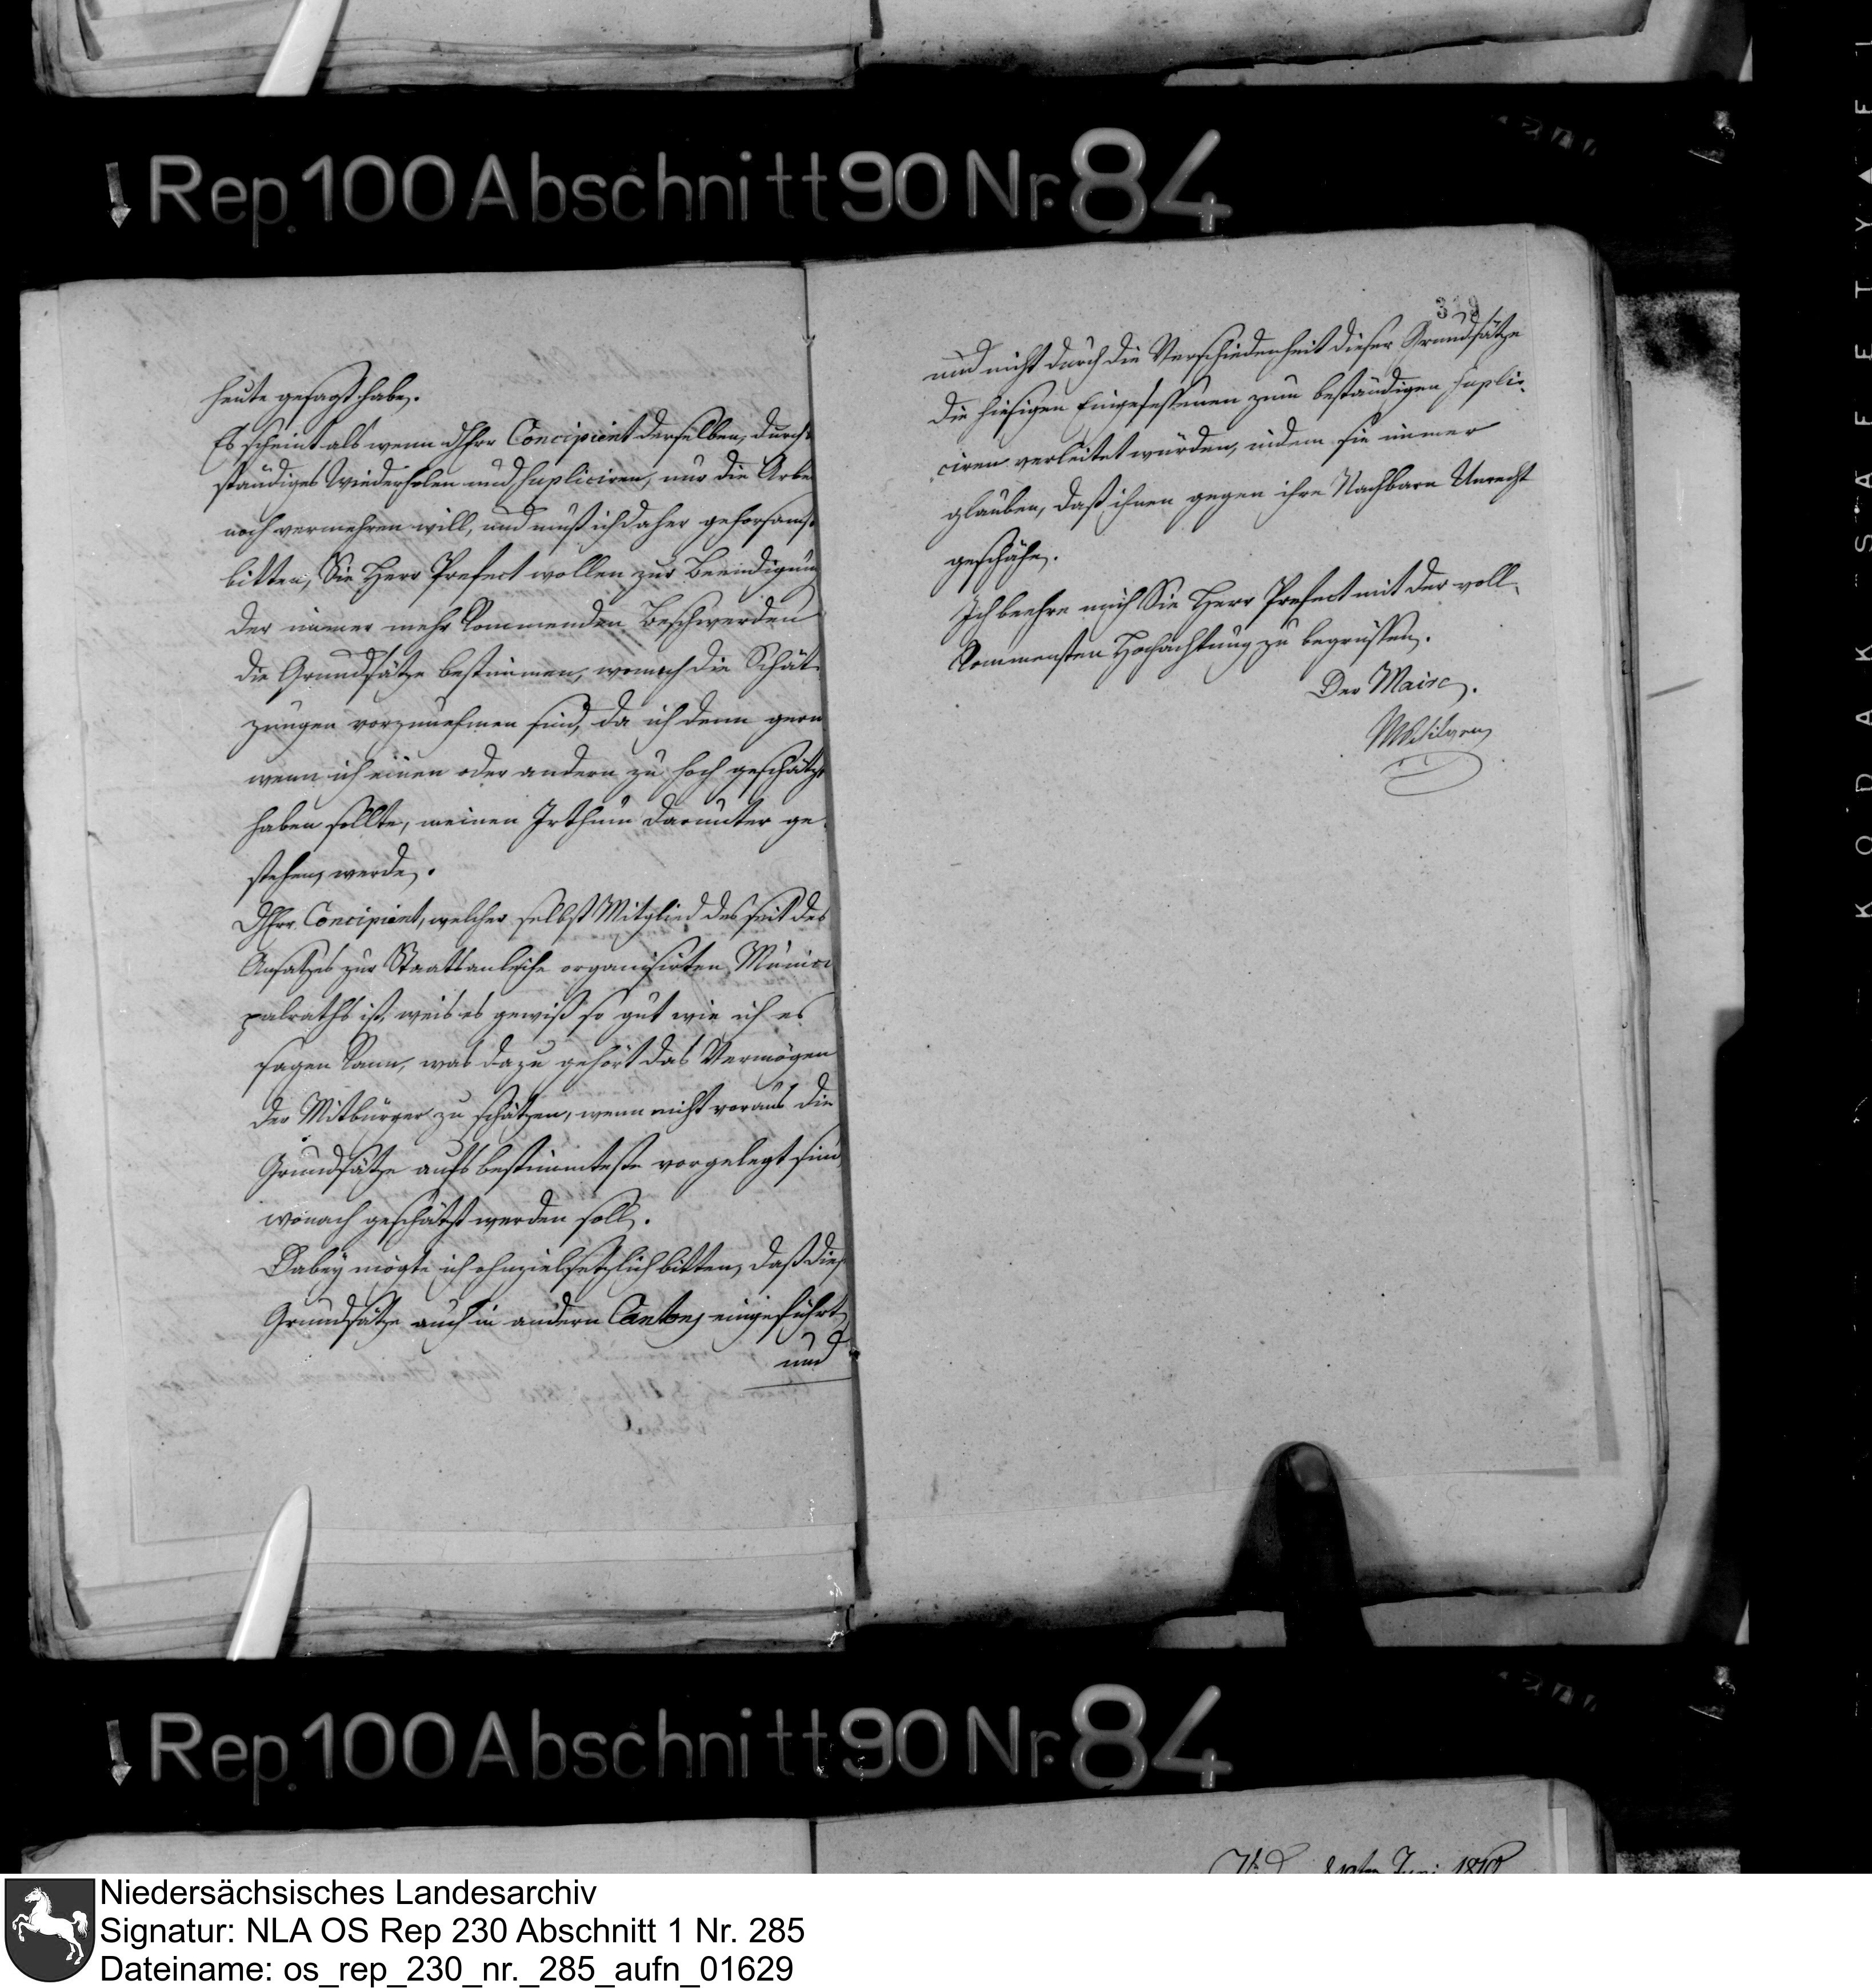 Rep. 100 Abschnitt 90 Nr. 84
heute gesagt habe.
Es scheint als wenn Hherr Concipient derselben, durch
ständiges Wiederholen und supliciren, nur die Arbei
noch vermehren will, und muß ich daher gehorsamst
bitten, Sie Herr Prefect wollen zur Beendigung
der immer mehr kommenden Beschwerden
die Grundsätze bestimmen, wonach die Schät-
zungen vorzunehmen sind, da ich denn gern
wenn ich einen oder andern zu hoch geschätzt
haben sollte, meinen Irthum darunter ge-
stehen werde.
Hherr Concipient, welcher selbst Mitglied des seit des
Ansatzes zur Staatsanleihe organisirten Munici
palraths ist, weis es gewiß so gut wie ich es
sagen kann, was dazu gehört das Vermögen
der Mitbürger zu schätzen, wenn nicht voraus die
Grundsätze aufs bestimmteste vorgelegt sind
wonach geschätzt werden soll.
Dabey mögte ich ohnzielsetzlich bitten, daß dies
Grundsätze auch in andern Cantons eingeführt
und
319
und nicht durch die Verschiedenheit dieser Grundsätze
die hiesigen Eingesessenen zum beständigen supli-
ciren verleitet würden, indem sie immer
glauben, daß ihnen gegen ihre Nachbarn Unrecht
geschähe.
Ich beehre mich Sie Herr Prefect mit der voll-
kommensten Hochachtung zu begrüssen.
Der Maire.
Rep. 100 Abschnitt 90 Nr. 84
Juni 1810
KODAK SAFETY
Niedersächsisches Landesarchiv
Signatur: NLA OS Rep 230 Abschnitt 1 Nr. 285
Dateiname: os_rep_230_nr._285_aufn_01629